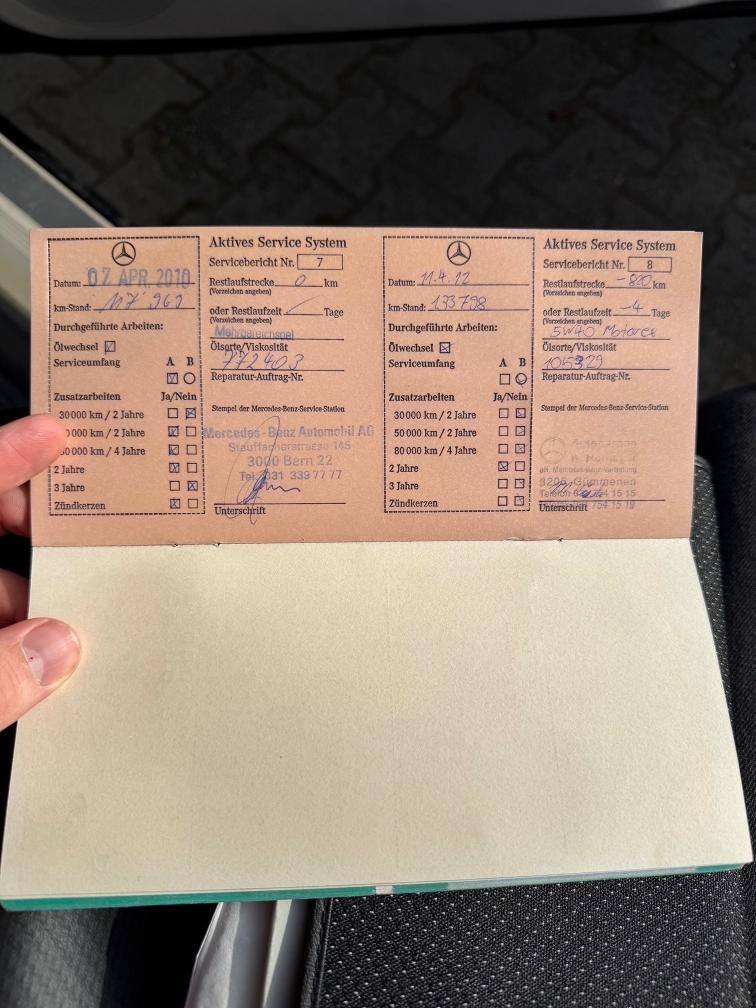 Datum: 07 APR. 2010
km-Stand: 117'962
Durchgeführte Arbeiten:
Ölwechsel
Serviceumfang A B
Zusatzarbeiten Ja/Nein
30000 km / 2 Jahre
0000 km / 2 Jahre
0000 km / 4 Jahre
2 Jahre
3 Jahre
Zündkerzen
Aktives Service System
Servicebericht Nr. 7
Restlaufstrecke 0 km
(Vorzeichen angeben)
oder Restlaufzeit / Tage
(Vorzeichen angeben)
Mehrbereichsoel
Ölsorte/Viskosität
772403
Reparatur-Auftrag-Nr.
Stempel der Mercedes-Benz-Service-Station
Mercedes-Benz Automobil AG
Stauffacherstrasse 145
3000 Bern 22
Tel. 031 339 77 77
Unterschrift
Datum: 11.4.12
km-Stand: 133798
Durchgeführte Arbeiten:
Ölwechsel
Serviceumfang A B
Zusatzarbeiten Ja/Nein
30000 km / 2 Jahre
50000 km / 2 Jahre
80000 km / 4 Jahre
2 Jahre
3 Jahre
Zündkerzen
Aktives Service System
Servicebericht Nr. 8
Restlaufstrecke -820 km
(Vorzeichen angeben)
oder Restlaufzeit -4 Tage
(Vorzeichen angeben)
5W40 Motorex
Ölsorte/Viskosität
105329
Reparatur-Auftrag-Nr.
Stempel der Mercedes-Benz-Service-Station
Mercedes-Benz-Vertretung
3205 Gümmenen
Telefon 15 15
754 15 19
Unterschrift